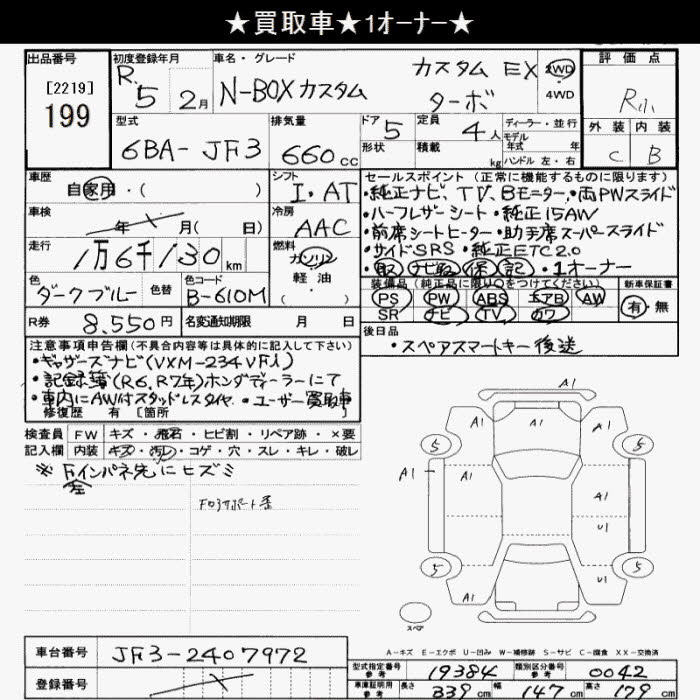 ★買取車★1オーナー★
出品番号
[2219]
199
初度登録年月
R.5 2月
車名・グレード
N-BOXカスタム
カスタム EX
ターボ
2WD
4WD
評価点
R小
外装 内装
C B
型式
6BA-JF3
排気量
660cc
ドア 5
形状
定員 4人
積載 kg
ディーラー・並行
モデル年式 年
ハンドル 左・右
車歴
自家用・( )
シフト
I・AT
車検
年 月( 日)
冷房
AAC
走行
1万6千130km
燃料
ガソリン
軽油
( )
色
ダークブルー
色替
色コード
B-610M
R券 8,550円
名変通知期限 月 日
セールスポイント(正常に機能するものに限ります)
・純正ナビ、TV、Bモニター・両PWスライド
・ハーフレザーシート・純正15AW
・前席シートヒーター・助手席スーパースライド
・サイドSRS・純正ETC2.0
・取 ナビ取 保 記・1オーナー
装備品(純正品に限り○をつけてください)
PS PW ABS エアB AW
SR ナビ TV カワ
新車保証書
有・無
後日品
・スペアスマートキー後送
注意事項申告欄(不具合内容等は具体的に記入して下さい)
・ギャザーズナビ(VXM-234VFi)
・記録簿(R6、R7年)ホンダディーラーにて
・車内にAW付スタッドレスタイヤ・ユーザー買取車
修復歴 有 [箇所
検査員 FW キズ・飛石・ヒビ割・リペア跡・×要
記入欄 内装 キズ・汚レ・コゲ・穴・スレ・キレ・破レ
※F左インパネ先にヒズミ
A1
A1
A1
5
5
A1
A1
A1
A1
U1
5
5
U1
A1
A1
スペア
A-キズ E-エクボ U-凹み W-補修跡 S-サビ C-腐食 XX-交換済
車台番号 JF3-2407972
登録番号
型式指定番号 参考 19384
類別区分番号 参考 0042
車庫証明用 参考 長さ 339cm 幅 147cm 高さ 179cm